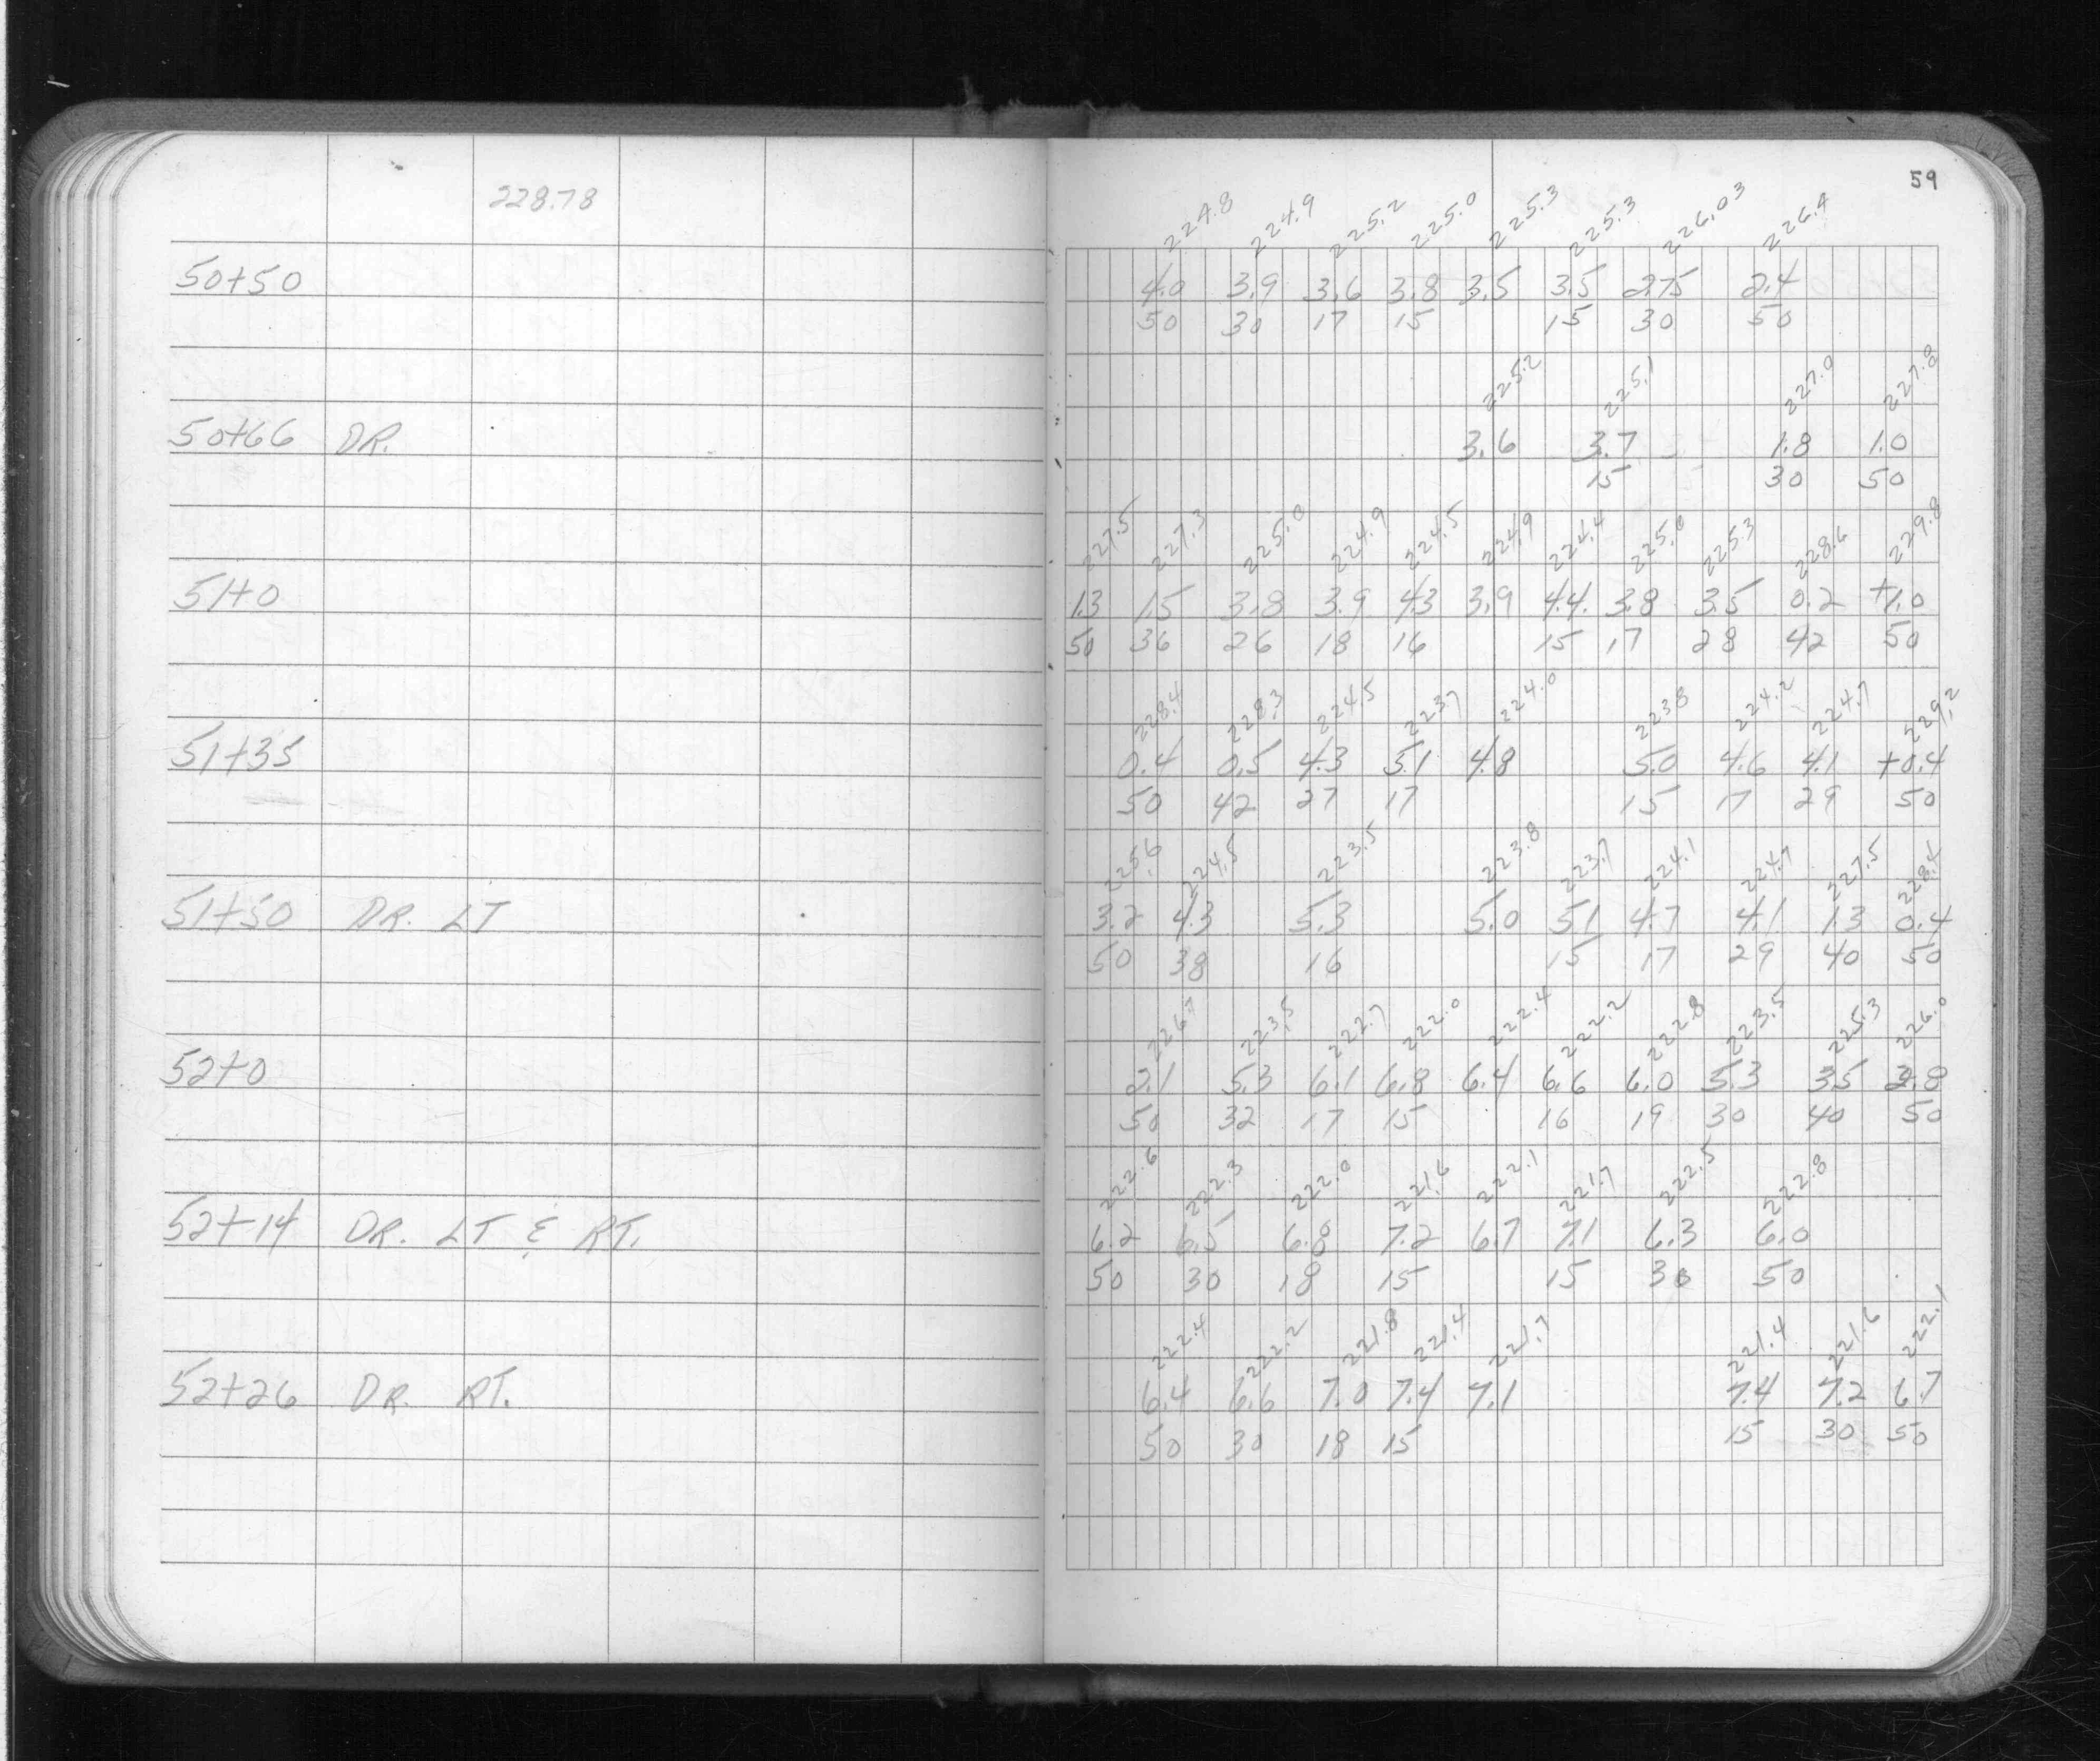 59
228.78
224.8 224.9 225.2 225.0 225.3 225.3 226.03 226.4
50+50 4.0 3.9 3.6 3.8 3.5 3.5 2.75 2.4
50 30 17 15 15 30 50
225.2 225.1 227.0 227.8
50+66 DR. 3.6 3.7 1.8 1.0
15 30 50
227.5 227.3 225.0 224.9 224.5 224.9 224.4 225.0 225.3 228.6 229.8
51+0 1.3 1.5 3.8 3.9 4.3 3.9 4.4 3.8 3.5 0.2 +1.0
50 36 26 18 16 15 17 28 42 50
228.4 228.3 224.5 223.7 224.0 223.8 224.2 224.7 229.2
51+35 0.4 0.5 4.3 5.1 4.8 5.0 4.6 4.1 +0.4
50 42 27 17 15 17 29 50
225.6 224.5 223.5 223.8 223.7 224.1 224.7 227.5 228.4
51+50 DR. LT 3.2 4.3 5.3 5.0 5.1 4.7 4.1 1.3 0.4
50 38 16 15 17 29 40 50
226.7 223.5 222.7 222.0 222.4 222.2 222.8 223.5 225.3 226.0
52+0 2.1 5.3 6.1 6.8 6.4 6.6 6.0 5.3 3.5 2.8
50 32 17 15 16 19 30 40 50
222.6 222.3 222.0 221.6 222.1 221.7 222.5 222.8
52+14 DR. LT & RT. 6.2 6.5 6.8 7.2 6.7 7.1 6.3 6.0
50 30 18 15 15 30 50
222.4 222.2 221.8 221.4 221.7 221.4 221.6 222.1
52+26 DR. RT. 6.4 6.6 7.0 7.4 7.1 7.4 7.2 6.7
50 30 18 15 15 30 50